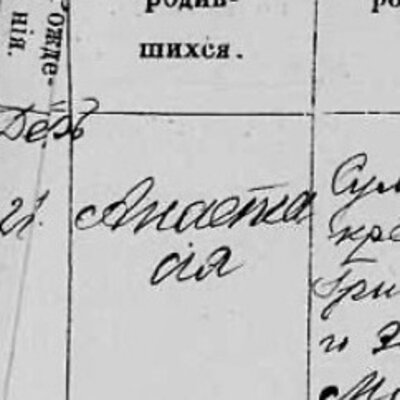 рожде-
нія.
родив-
шихся.
Дек
21.
Анаста
сія
Сум
кре
Гри
и